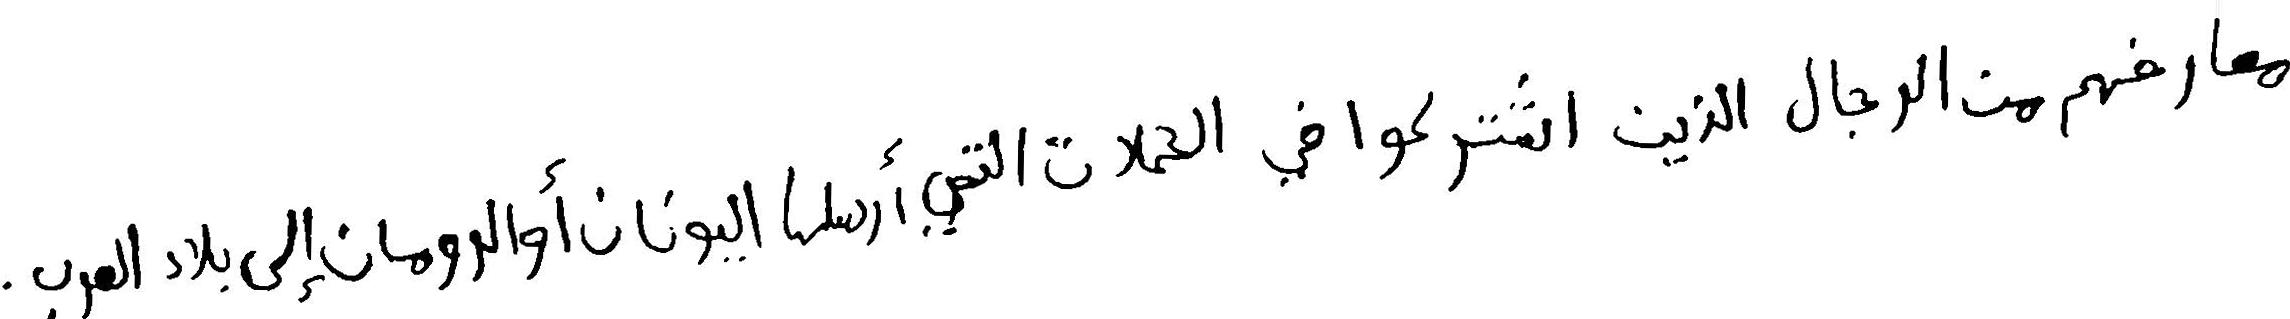 معارضهم من الرجال الذين اشتركوا في الحملات التي أرسلها اليونان أو الرومان إلى بلاد العرب .